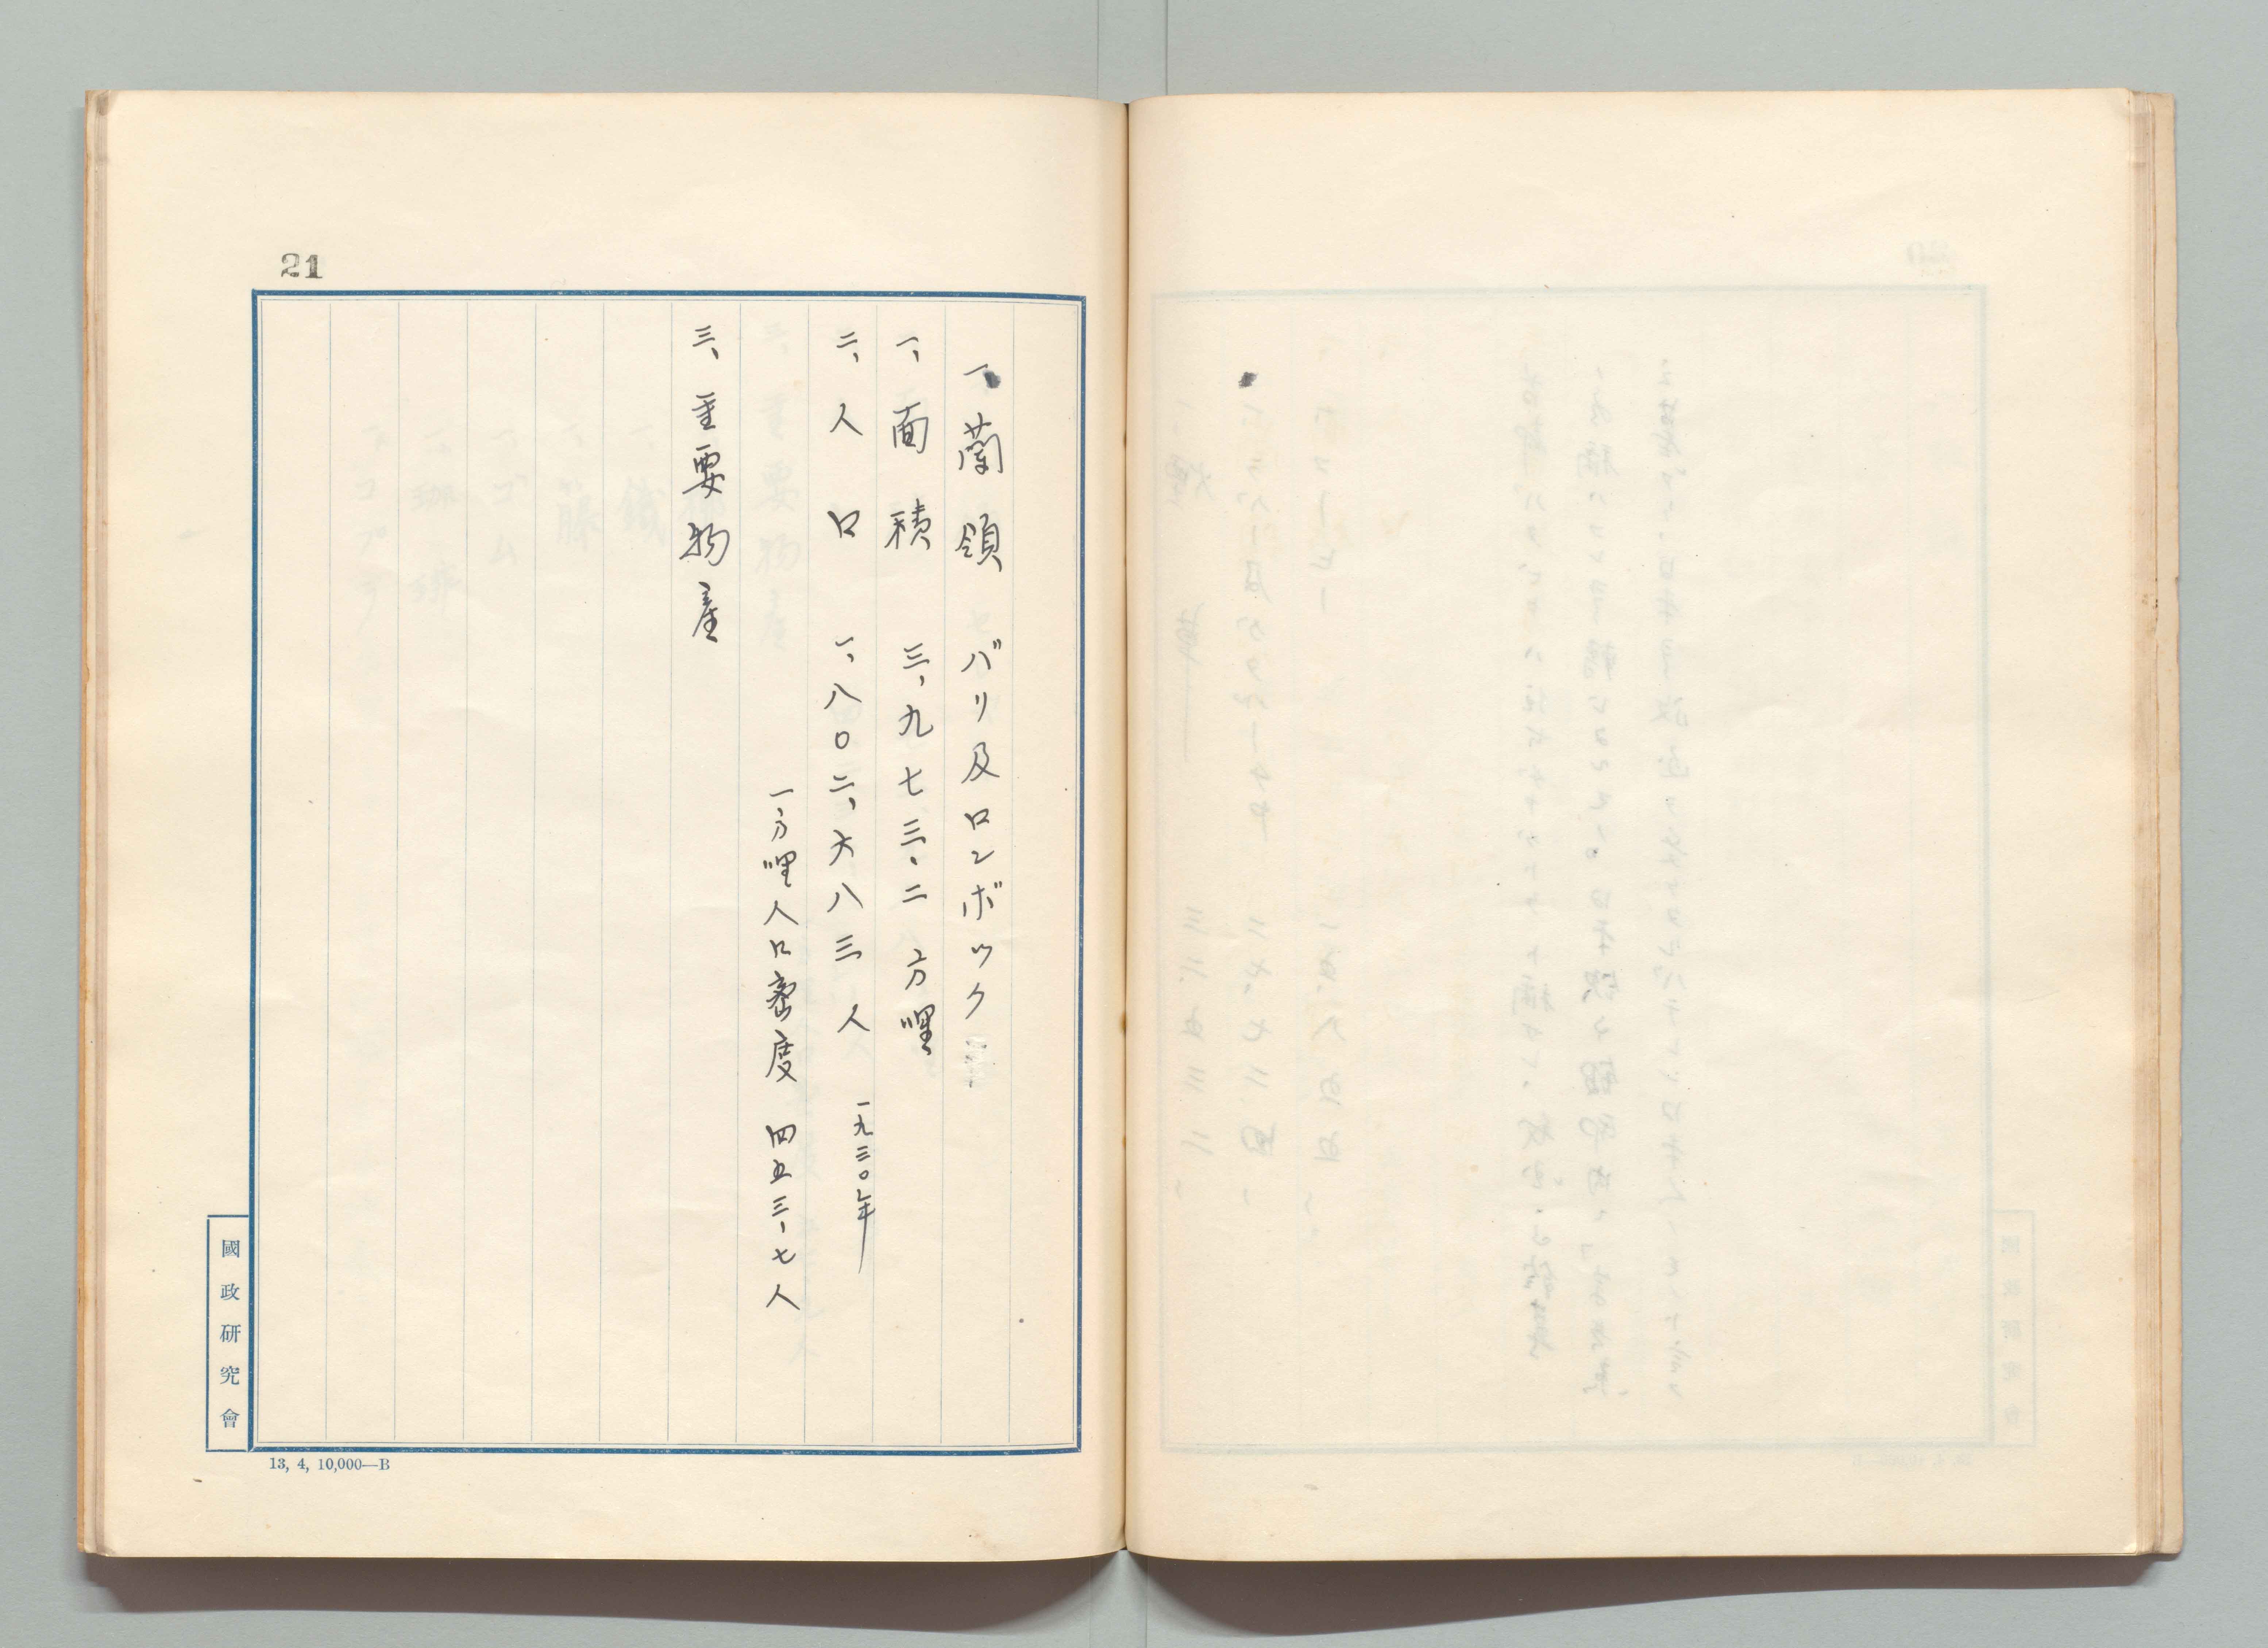 21
一、蘭領 バリ及ロンボック
一、面積 三、九七三.二 方哩
二、人口 一、八〇二、六八三人 一九三〇年
一方哩人口密度 四五三、七人
三、重要物産
國政研究會
13, 4, 10,000—B